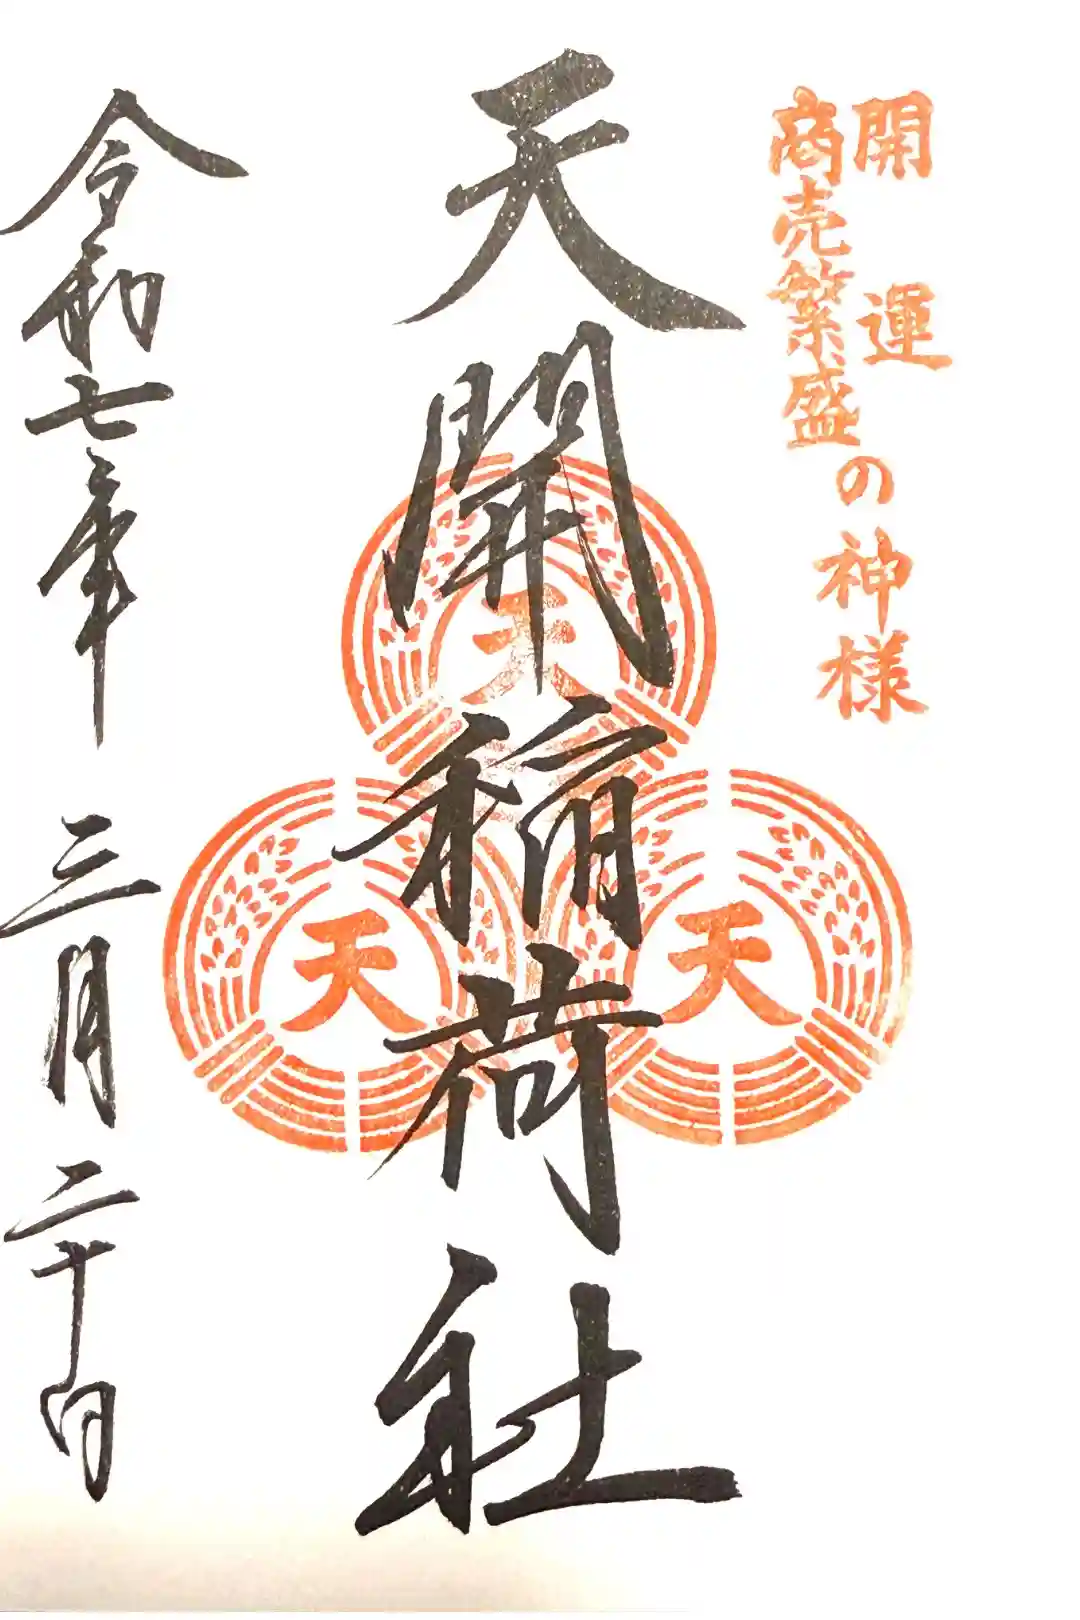 開運
商売繁盛の神様
天開稲荷社
天
天
天
令和七年 三月 二十日